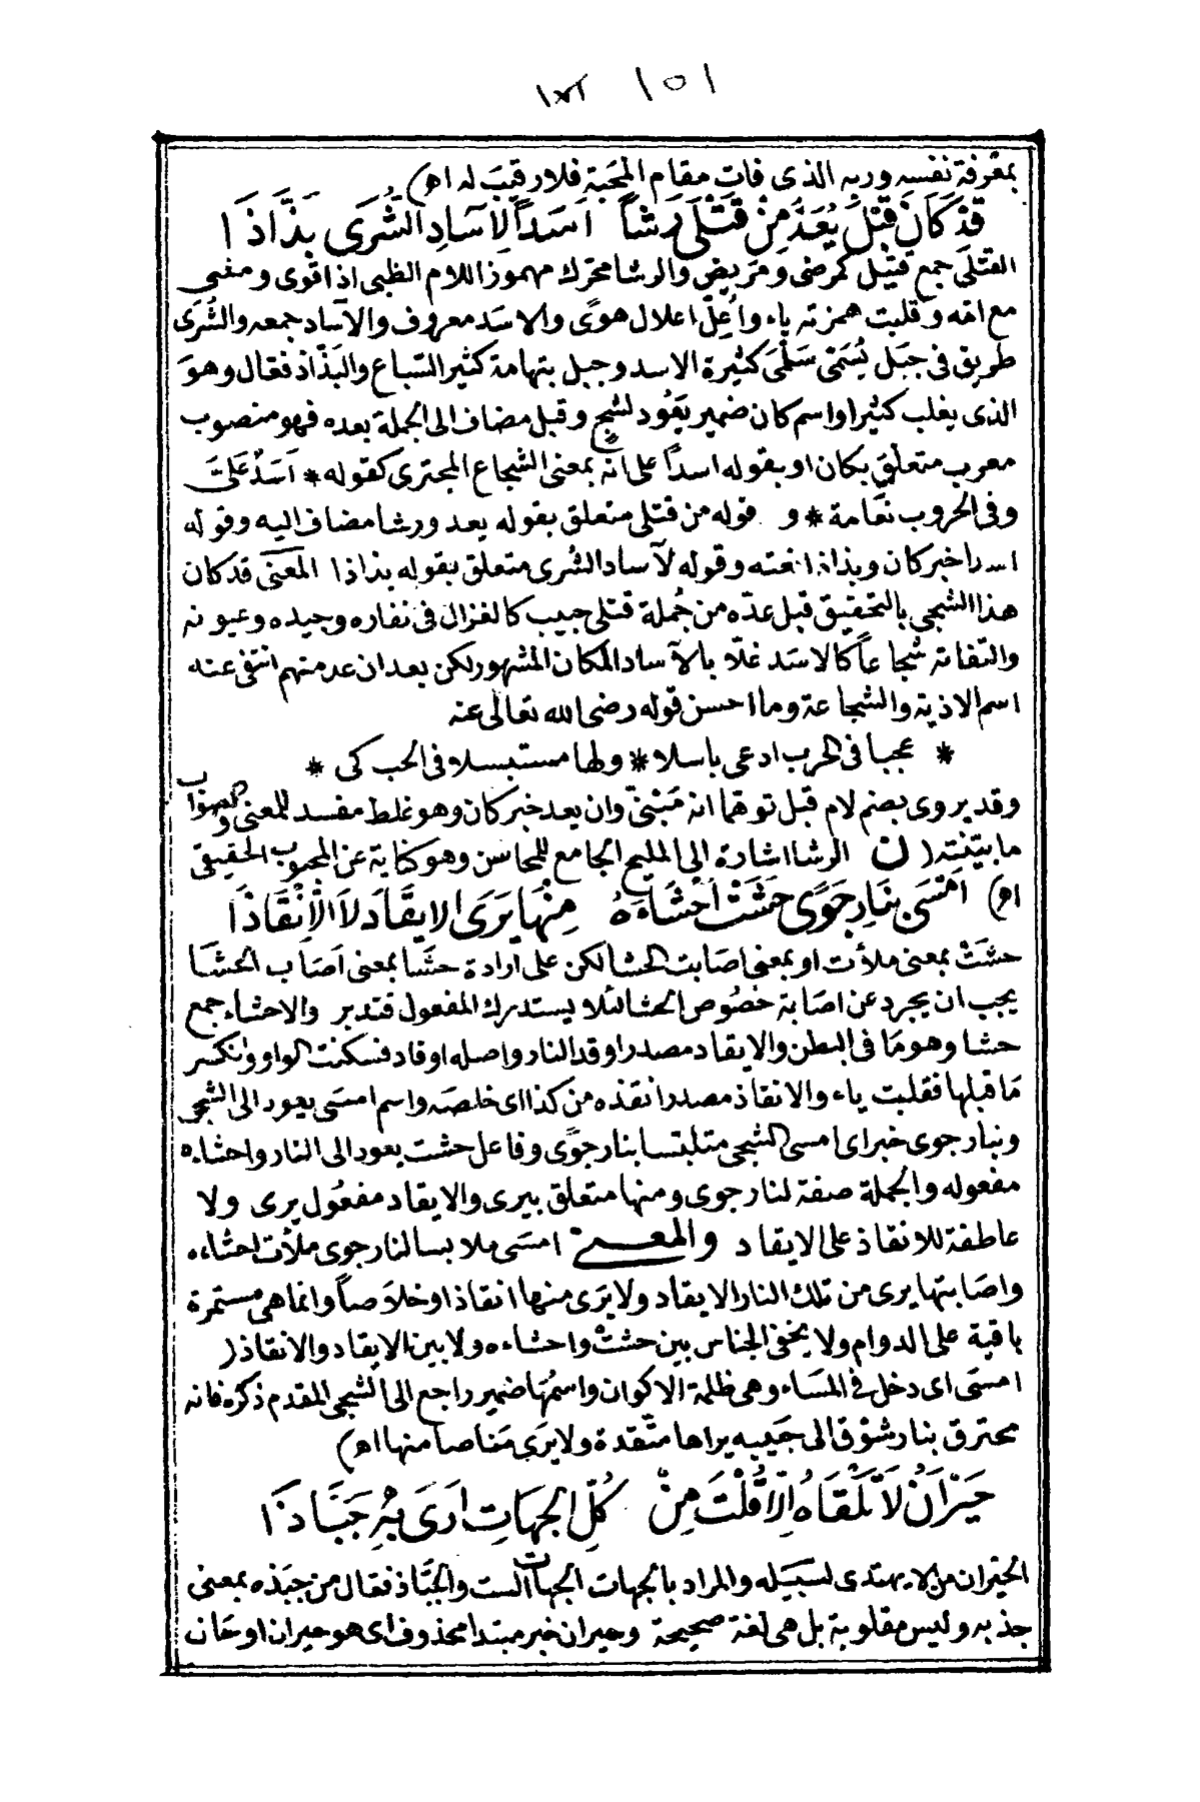 ١٥١
بمعرفة نفسه وربه الذى فات مقام المحبة فلا رقيب له اه)
قَدْ كَانَ قَبْلَ يُعَدُّ مِنْ قَتْلَى رَشًا أَسَدًا لِآسَادِ الشَّرَى بَذَّاذَا
القتلى جمع قتيل كمرضى ومريض والرشا محرك مهموز اللام الظبى اذا قوى ومشى
مع امه وقلبت همزته ياء وأُعِلّ اعلال هوًى والاسد معروف والآساد جمعه والشرى
طريق فى جبل يُسَمَّى سَلْمَى كثيرة الاسد وجبل بتهامة كثير السباع والبذّاذ فعّال وهو
الذى يغلب كثيرا واسم كان ضمير يعود لشجٍ وقبل مضاف الى الجملة بعده فهو منصوب
معرب متعلق بكان او بقوله اسدًا على انه بمعنى الشجاع المجترى كقوله * اسد علىّ
وفى الحروب نعامة * و قوله من قتلى متعلق بقوله يعد ورشا مضاف اليه وقوله
اسدا خبر كان وبذاذا نعته وقوله لآساد الشرى متعلق بقوله بذاذا المعنى قد كان
هذا الشجى بالتحقيق قبل عدّه من جُملة قتلى حبيب كالغزال فى نفاره وجيده وعيونه
والتفاته شجاعًا كالاسد غلّابا لآساد المكان المشهور لكن بعد ان عد منهم انتفى عنه
اسم الاذية والشجاعة وما احسن قوله رضى الله تعالى عنه
* عجبا فى الحرب ادعى باسلا * ولها مستبسلا فى الحب كى *
وقد يروى بضم لام قبل توهما انه مَبْنىّ وان يعد خبر كان وهو غلط مفسد للمعنى والصواب
ما بيّنته (ن الرشا اشارة الى المليح الجامع للمحاسن وهو كناية عن المحبوب الحقيقى
اه) أَمْسَى بِنَارِ جَوًى حَشَتْ أَحْشَاءَهُ مِنْهَا يَرَى الإيقَادَ لاَ الْإنْقَاذَا
حشَتْ بمعنى ملأت او بمعنى اصابت الحشا لكن على ارادة حشا بمعنى اصاب الحشا
يجب ان يجرد عن اصابة خصوص الحشا لئلا يستدرك المفعول فتدبر والاحشاء جمع
حشا وهو ما فى البطن والايقاد مصدر اوقد النار واصله اوقاد فسكنت الواو وانكسر
ما قبلها فقلبت ياء والانقاذ مصدر انقذه من كذا اى خلصه واسم امسى يعود الى الشجى
وبنار جوى خبر اى امسى الشجى متلبتسا بنار جوًى وفاعل حشت يعود الى النار واحشاءه
مفعوله والجملة صفة لنار جوى ومنها متعلق بيرى والايقاد مفعول يرى ولا
عاطفة للانقاذ على الايقاد والمعنى امسى ملابسا لنار جوى ملأت احشاءه
واصابتها يرى من تلك النار الايقاد ولا يرى منها انقاذا وخلاصًا وانما هى مستمرة
باقية على الدوام ولا يخفى الجناس بين حشتْ واحشاءه ولا بين الايقاد والانقاذ (
امسى اى دخل فى المساء وهى ظلمة الاكوان واسمها ضمير راجع الى الشجى المقدم ذكره فانه
محترق بنار شوق الى حبيبه يراها متّقدة ولا يرى مناصا منها اه)
حَيْرَانُ لاَ تَلْقَاهُ إِلَّا قُلْتَ مِنْ كُلِّ الْجِهَاتِ أَرَى بِهِ جَبَّاذَا
الحيران من لا يهتدى لسبيله والمراد بالجهات الجهات الست والجبّاذ فعال من جبذه بمعنى
جذبه وليس مقلوبة بل هى لغة صحيحة وحيران خبر مبتدا محذوف اى هو حيران او خان